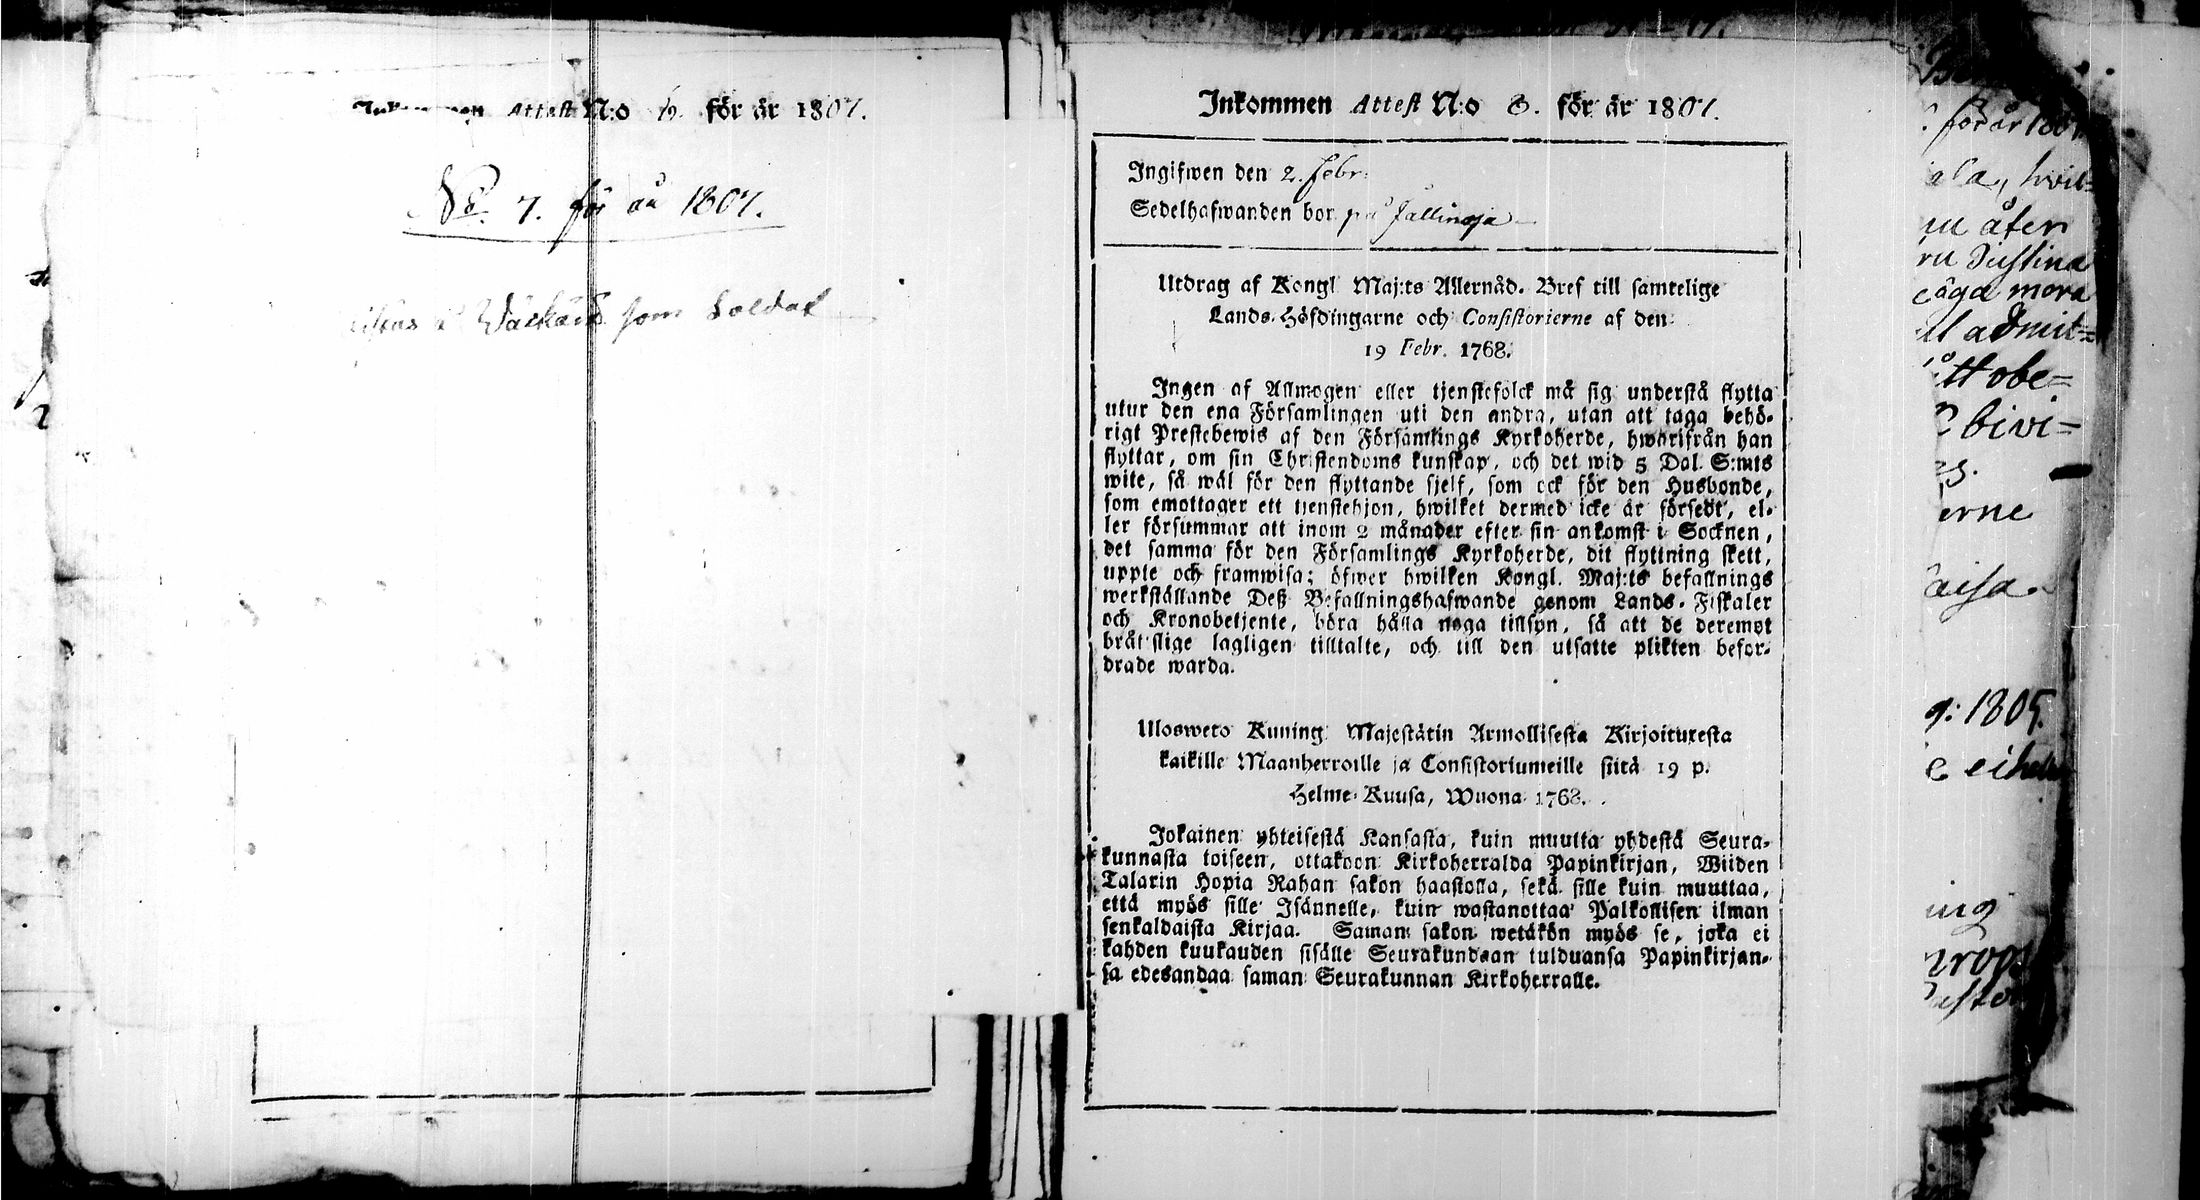 Inkommen Attest N:o för år 1807.
No. 7. för åu 1807.
Wäckärä som Soldat
Inkommen Attest N:o 8. för år 1807.
Ingifwen den 2. Febr:
Sedelhafwanden bor på Jallinoja
Utdrag af Kongl Maj:ts Allernåd. Bref till samtelige
Lands-Höfdingarne och Consistorierne af den
19 Febr. 1768.
Ingen af Allmogen eller tjenstefolck må sig understå flytta
utur den ena Församlingen uti den andra, utan att taga behö-
rigt Prestebewis af den Församlings Kyrkoherde, hwarifrån han
flyttar, om sin Christendoms kunskap, och det wid 5 Dal. S:mts
wite, så wäl för den flyttande sjelf, som ock för den Husbonde,
som emottager ett tjenstehjon, hwilket dermed icke är försedt, el-
ler försummar att inom 2 månader efter sin ankomst i Socknen,
det samma för den Församlings Kyrkoherde, dit flyttning skett,
uppte och framwisa; öfwer hwilken Kongl. Maj:ts befallnings
werkställande Deß Befallningshafwande genom Lands-Fiskaler
och Kronobetjente, böra hålla noga tillsyn, så att de deremot
brätslige lagligen tilltalte, och till den utsatte plikten befor-
drade warda.
Uloswero Kuning Majestätin Armollisesta Kirjoituxesta
kaikille Maanherroille ja Consistoriumeille siitä 19 p.
Helme-Kuusa, Wuona 1768.
Jokainen yhteisestä Kansasta, kuin muutta yhdestä Seura-
kunnasta toiseen, ottakoon Kirkoherralda Papinkirjan, Wiiden
Talarin Hopia Rahan sakon haastolla, sekä sille kuin muuttaa,
että myös sille Isännelle, kuin wastanottaa Palkollisen ilman
senkaldaista Kirjaa. Saman sakon wetäkön myös se, joka ei
kahden kuukauden sisälle Seurakundaan tulduansa Papinkirjan-
sa edesandaa saman Seurakunnan Kirkoherralle.
för år 1807
ala, hvil=
nu åter
Justina
äga mera
admit=
tt obe=
bivi=
erne
aisa
1805.
ing